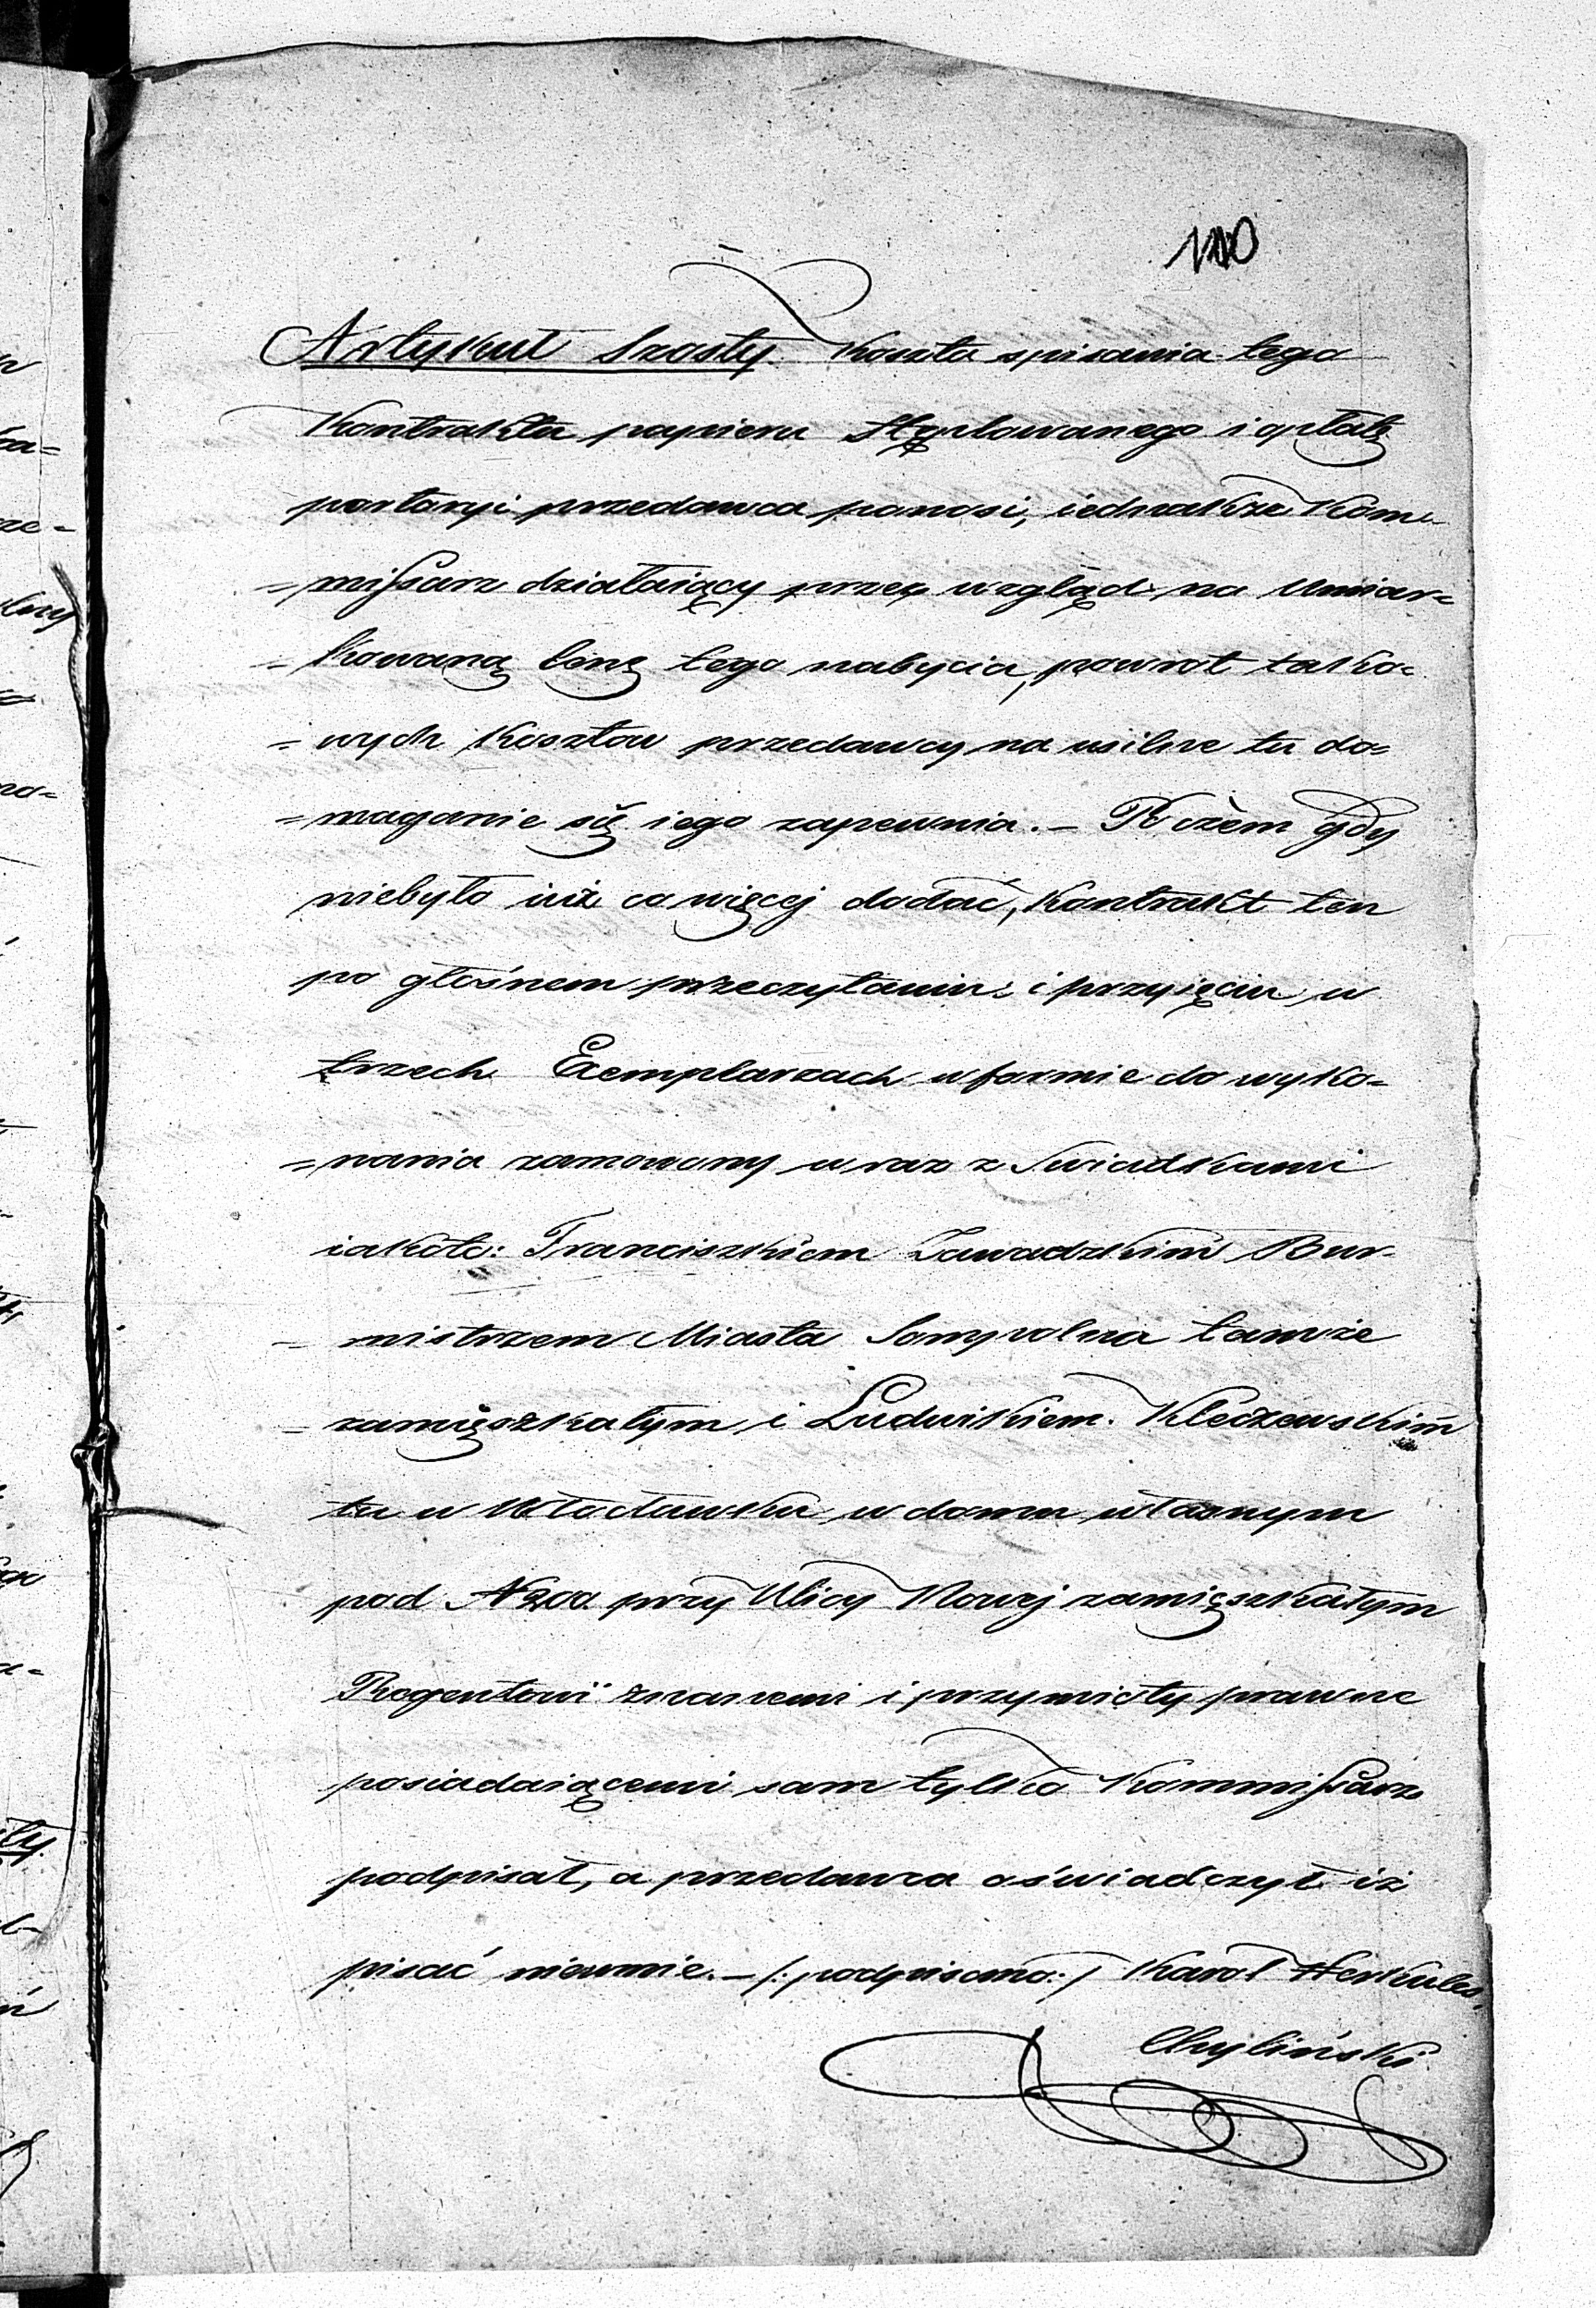 100
Artykuł Szosty. Koszta spisania tego
Kontraktu papieru Stęplowanego i opłatę
portoryi przedawca ponosi, iednakże Kom-
=missarz działaiący przez wzgląd na Umiar=
=kowaną Cenę tego nabycia, powrot tako=
=wych Kosztow przedawcy na usilne tu do=
=maganie się iego zapewnia. – Poczem gdy
niebyło iuż co więcej dodać, Kontrakt ten
po głośnem przeczytaniu i przyięciu w
trzech Exemplarzach w formie do wyko=
=nania zamowiony wraz z Swiadkami
iakoto: Franciszkiem Zawadzkim Bur-
=mistrzem Miasta Sompolna tamże
=zamięszkałym i Ludwikiem Kleczewskim
tu w Włocławku w domu własnym
pod N 200 przy Ulicy Nowej zamięszkałym
Regentowi znanemi i przymioty prawne
posiadaiącemi sam tylko Kommissarz
podpisał, a przedawca oświadczył iż
pisać nieumie. – /: podpisano :/ Karol Herkules
Chyliński